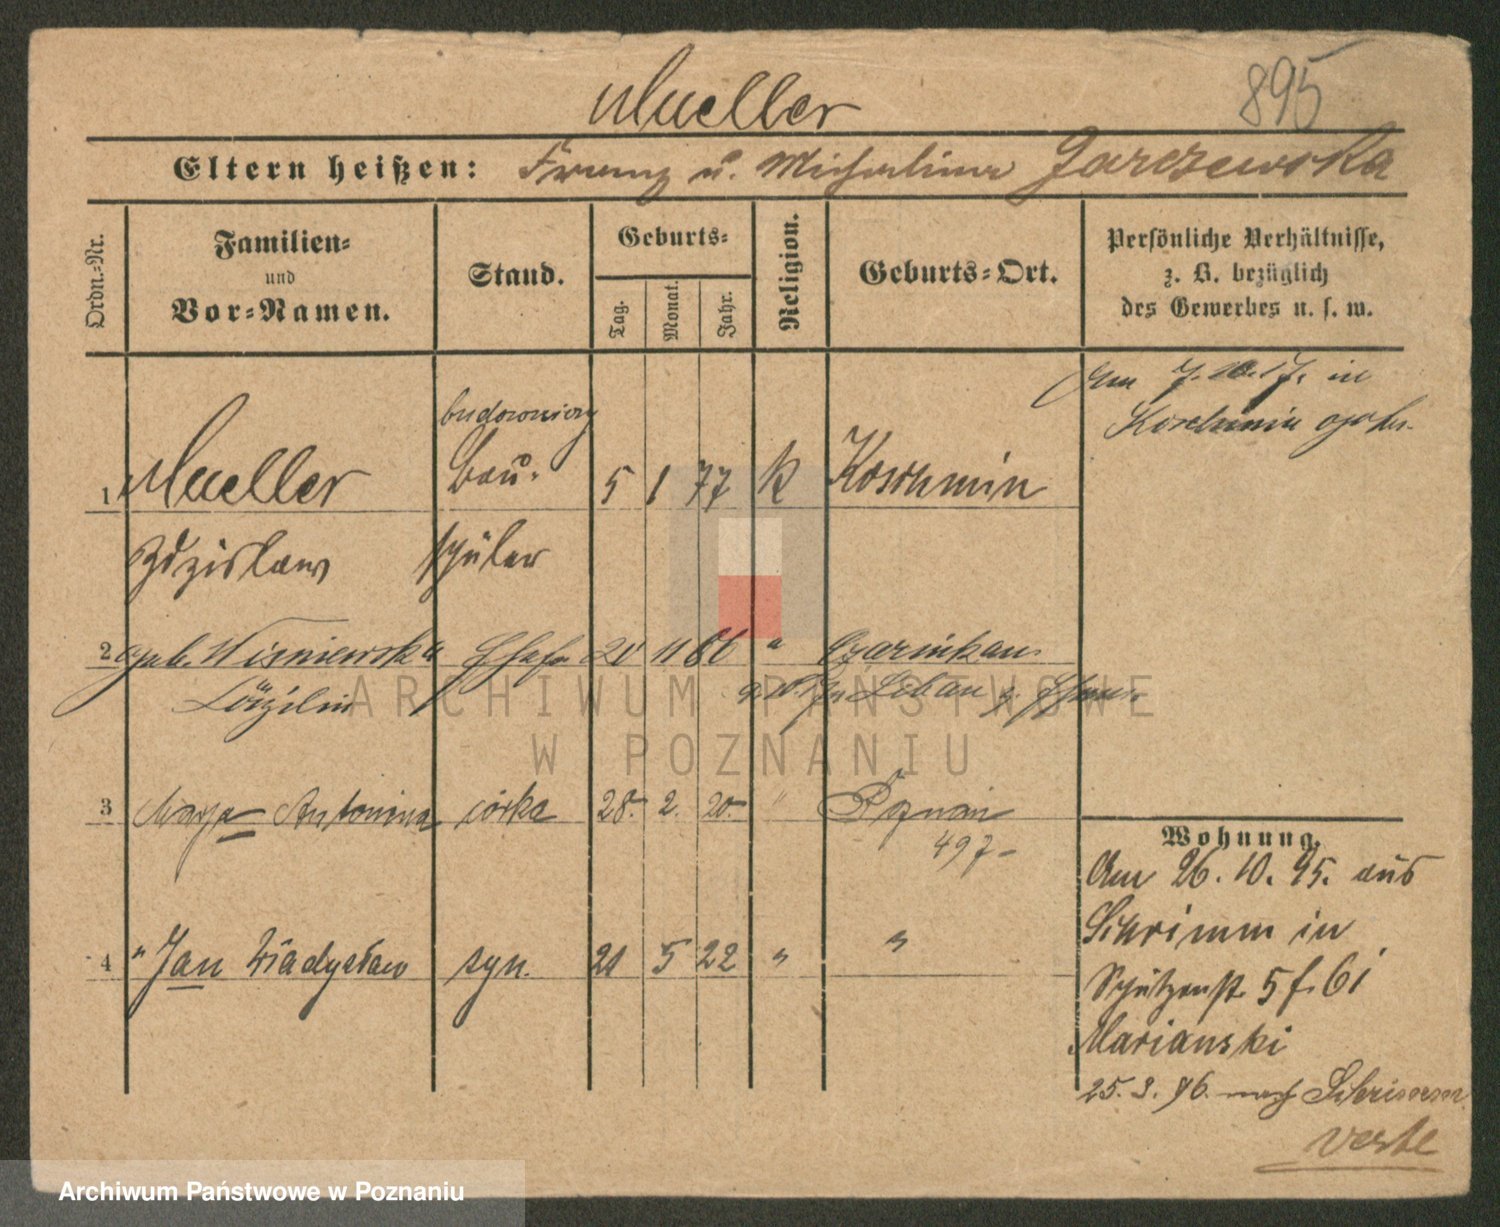 895
Mueller
Eltern heißen: Franz u. Michalina Jarczewska
Ordn.=Nr.
Familien=
und
Vor=Namen.
Stand.
Geburts=
Tag.
Monat.
Jahr.
Religion.
Geburts=Ort.
Persönliche Verhältnisse,
z. B. bezüglich
des Gewerbes u. s. w.
Am 7.10.17. in
Koschmin
budowniczy
1 Mueller Bau- 5 1 77 K Koschmin
Zdzisław schüler
2 geb. Wisniewska Ehefr 11 " Czarnikau
Cäzilie
3 Marja Antonina córka 28. 2. 20. " Poznań
497-
4 " Jan Władysław syn. 21 5 22 " "
Wohnung.
Am 26. 10. 95. aus
Schrimm in
Schützenstr. 5 f. bi
Marianski
25. 3. 96. nach Schrimm
verte
ARCHIWUM PAŃSTWOWE
W POZNANIU
Archiwum Państwowe w Poznaniu